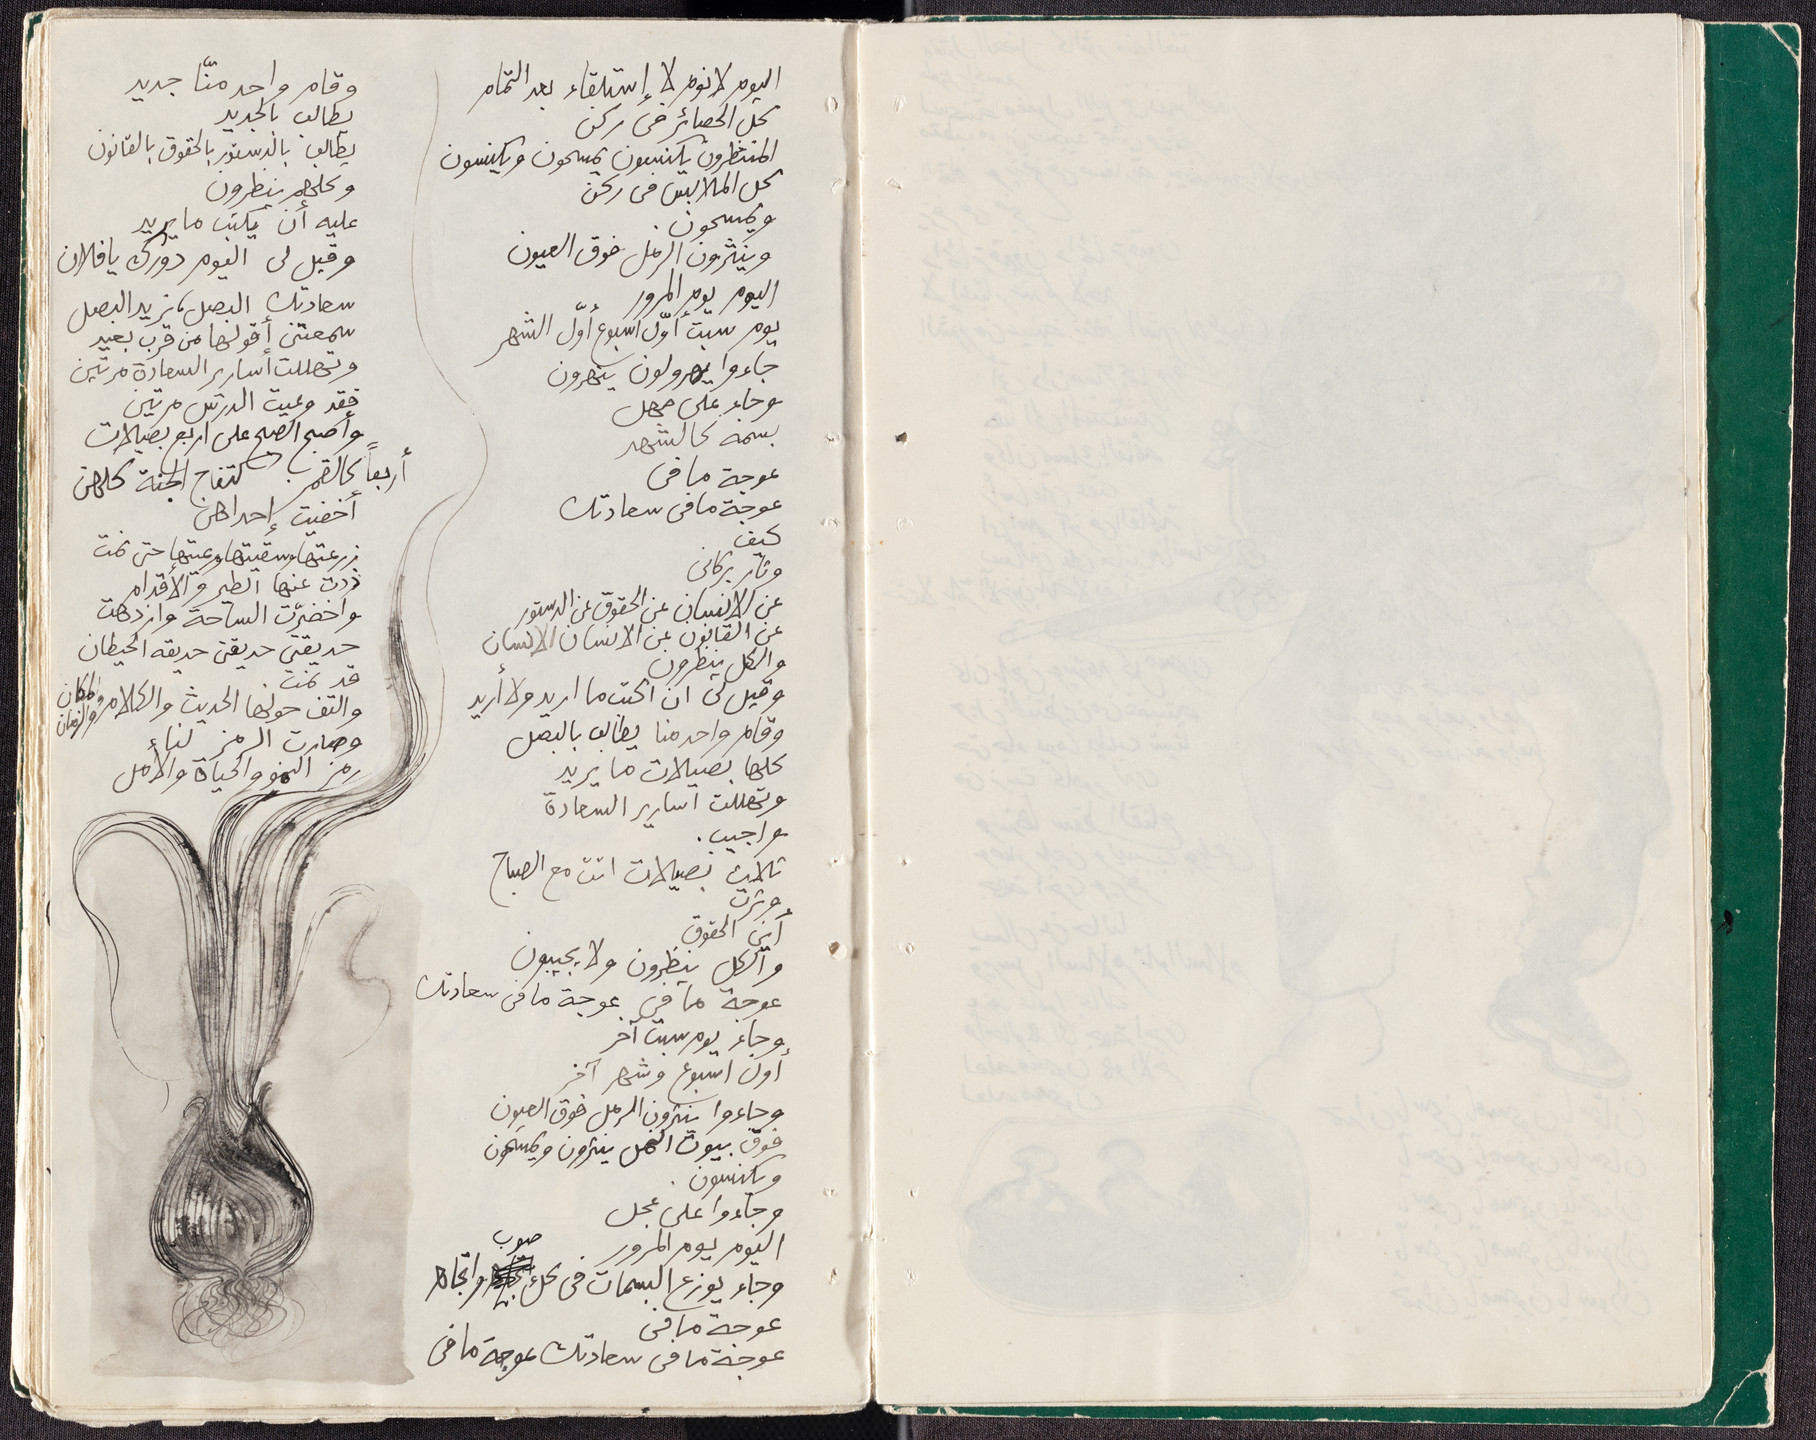 اليوم لا نوم لا إستلقاء بعد التمام
كل الحصائر في ركن
المنتظرون يكنسون يمسحون ويكنسون
كل الملابس في ركن
ويمسحون.
وينثرون الرمل فوق العيون
اليوم يوم المرور
يوم سبت أوّل اسبوع أوّل الشهر
جاءوا يهرولون ينهرون
وجاء على مهل
بسمة كالشهد
عوجة مافي
عوجة مافي سعادتك
كيف
وثار بركاني
عن الانسان عن الحقوق عن الدستور
عن القانون عن الانسان الانسان
والكل ينظرون
وقيل لي ان اكتب ما اريد ولا أريد
وقام واحد منا يطالب بالبصل
كلها بصيلات ما يريد
وتهللت اسارير السعادة
واجيب.
ثلاث بصيلات اتت مع الصباح
وثرت
أين الحقوق
والكل ينظرون ولا يجيبون
عوجة مافي عوجة مافي سعادتك
وجاء يوم سبت آخر
أول اسبوع وشهر آخر
وجاءوا ينثرون الرمل فوق العيون
فوق بيوت النمل ينثرون ويمسحون
ويكنسون.
وجاءوا على عجل
اليوم يوم المرور
وجاء يوزع البسمات في كل صوب واتجاه
عوجة مافي
عوجة مافي سعادتك عوجة مافي
وقام واحد منّا جديد
يطالب بالجديد
يطالب بالدستور بالحقوق بالقانون
وكلهم ينظرون
عليه أن يكتب ما يريد
وقيل لي اليوم دورك يا فلان
سعادتك البصل، نريد البصل
سمعتني أقولها من قرب بعيد
وتهللت أسارير السعادة مرتين
فقد وعيت الدرس مرتين
وأصبح الصبح على اربع بصيلات
أربعاً كالقمر كتفاح الجنة كلهن
أخفيت إحداهن
زرعتها وسقيتها ورعيتها حتى نمت
ذدت عنها الطير والأقدام
واخضرّت الساحة وازدهت
حديقتي حديقتي حديقة الحيطان
قد نمت
والتف حولها الحديث والكلام والمكان والزمان
وصارت الرمز لنا
رمز النمو والحياة والأمل